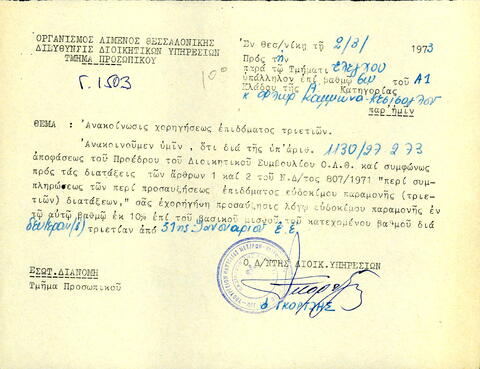 ΟΡΓΑΝΙΣΜΟΣ ΛΙΜΕΝΟΣ ΘΕΣΣΑΛΟΝΙΚΗΣ
ΔΙΕΥΘΥΝΣΙΣ ΔΙΟΙΚΗΤΙΚΩΝ ΥΠΗΡΕΣΙΩΝ
ΤΜΗΜΑ ΠΡΟΣΩΠΙΚΟΥ
Γ.1503
10°
Ἐν Θεσ/νίκῃ τῇ 2/3/ 1973
Πρός τήν
παρά τῷ Τμήματι Ἐλέγχου
ὑπάλληλον ἐπί βαθμῷ 6ῳ τοῦ Α1
Κλάδου τῆς Α Κατηγορίας
παρ'ἡμῖν
ΘΕΜΑ : Ἀνακοίνωσις χορηγήσεως ἐπιδόματος τριετιῶν.
Ἀνακοινοῦμεν ὑμῖν, ὅτι διά τῆς ὑπ'ἀριθ. 1130/27 2 73
ἀποφάσεως τοῦ Προέδρου τοῦ Διοικητικοῦ Συμβουλίου Ο.Λ.Θ. καί συμφώνως
πρός τάς διατάξεις τῶν ἄρθρων 1 καί 2 τοῦ Ν.Δ/τος 807/1971 "περί συμ-
πληρώσεως τῶν περί προσαυξήσεως ἐπιδόματος εὐδοκίμου παραμονῆς (τριε-
τιῶν) διατάξεων," σᾶς ἐχορηγήθη προσαύξησις λόγῳ εὐδοκίμου παραμονῆς ἐν
τῷ αὐτῷ βαθμῷ ἐκ 10% ἐπί τοῦ βασικοῦ μισθοῦ τοῦ κατεχομένου βαθμοῦ διά
δευτέραν(s) τριετίαν ἀπό 31ης Ἰανουαρίου ἔ.ἔ.
Ο Δ/ΝΤΗΣ ΔΙΟΙΚ.ΥΠΗΡΕΣΙΩΝ
ΕΣΩΤ.ΔΙΑΝΟΜΗ
Τμῆμα Προσωπικοῦ
Θ ΓΚΟΡΤΖΗΣ